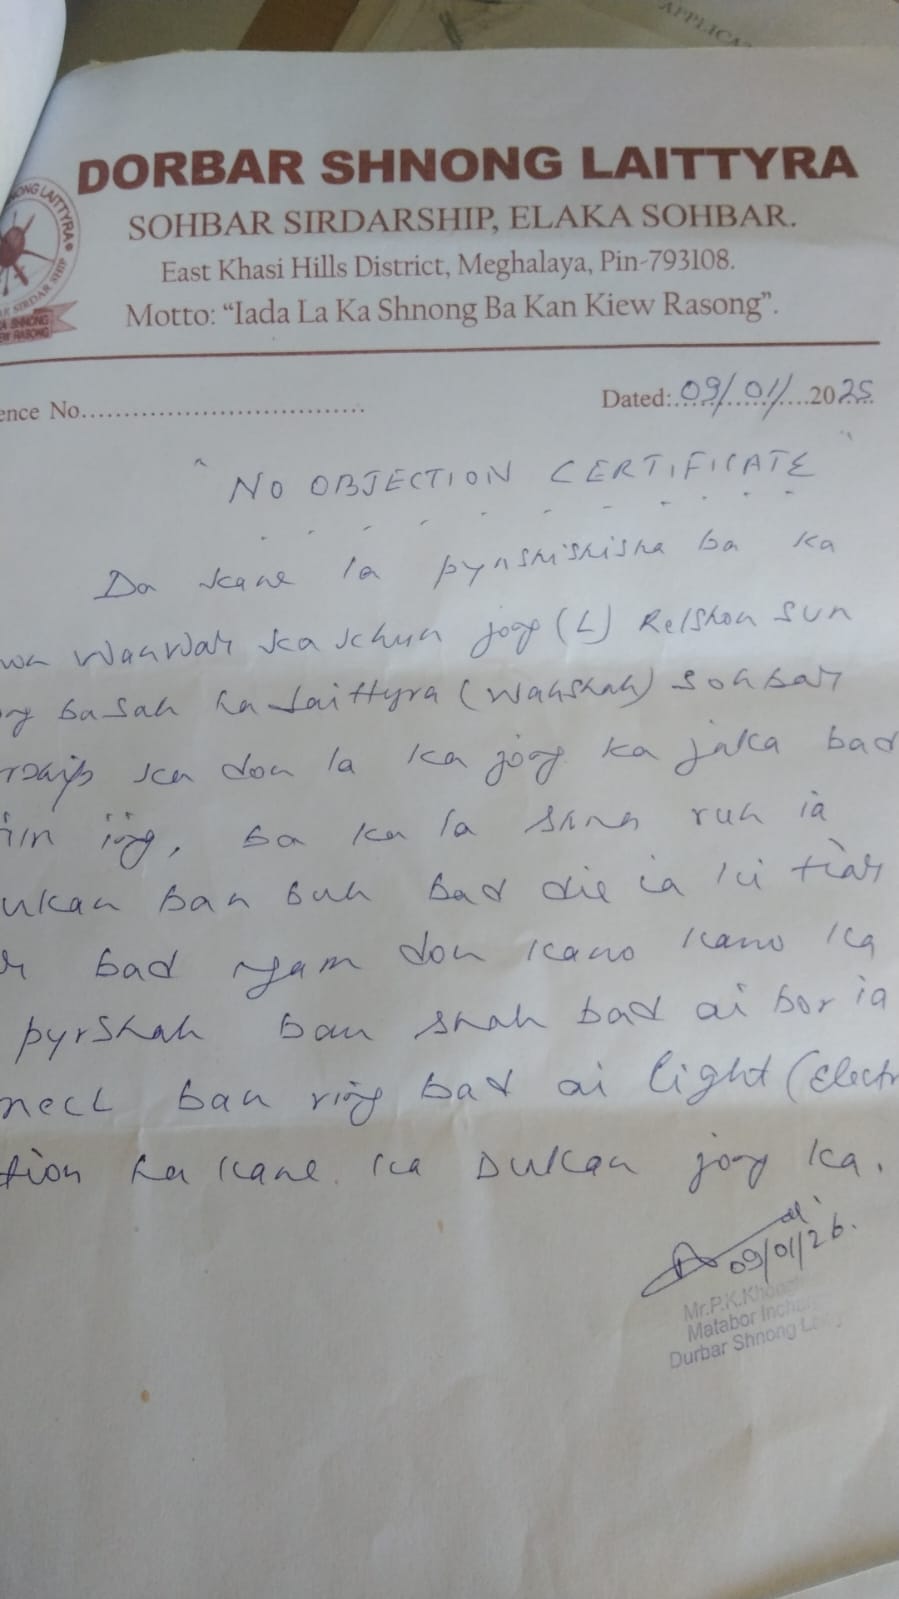 APPLICA
DORBAR SHNONG LAITTYRA
SOHBAR SIRDARSHIP, ELAKA SOHBAR.
East Khasi Hills District, Meghalaya, Pin-793108.
Motto: “Iada La Ka Shnong Ba Kan Kiew Rasong”.
ONG LAITTYRA
SIRDAR SHIP
ence No.
Dated: 09/01/2025
"NO OBJECTION CERTIFICATE"
Da kane la pynshisha ba ka
Wahwar ka khun jong (L) Relshon Sun
ba sah ha Laittyra (Wahshah) Sohbar
ka don la ka jong ka jaka bad
iing, ba ka la shna ruh ia
ukan ban buh bad die ia ki tiar
bad ngam don kano kano ka
pyrshah ban shah bad ai bor ia
MeECL ban ring bad ai light (Electr
tion ha kane ka Dukan jong ka.
09/01/26.
Mr.P.K.
Matabor
Durbar Shnong